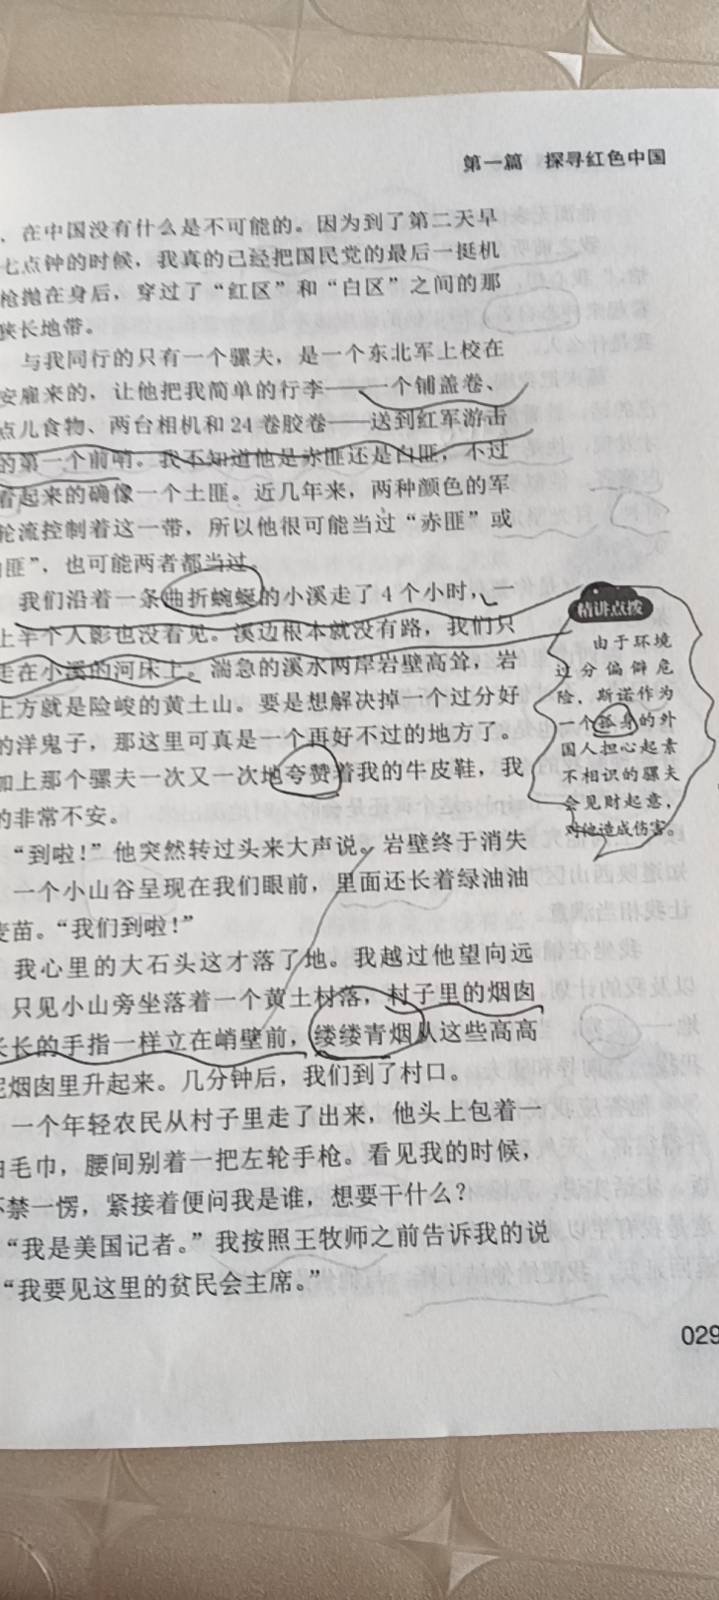 第一篇 探寻红色中国
、在中国没有什么是不可能的。因为到了第二天早
七点钟的时候，我真的已经把国民党的最后一挺机
枪抛在身后，穿过了“红区”和“白区”之间的那
狭长地带。
与我同行的只有一个骡夫，是一个东北军上校在
安雇来的，让他把我简单的行李——一个铺盖卷、
点儿食物、两台相机和24卷胶卷——送到红军游击
的第一个前哨。我不知道他是赤匪还是白匪，不过
看起来的确像一个土匪。近几年来，两种颜色的军
轮流控制着这一带，所以他很可能当过“赤匪”或
匪”，也可能两者都当过。
我们沿着一条曲折蜿蜒的小溪走了4个小时，
上半个人影也没看见。溪边根本就没有路，我们只
走在小溪的河床上。湍急的溪水两岸岩壁高耸，岩
上方就是险峻的黄土山。要是想解决掉一个过分好
的洋鬼子，那这里可真是一个再好不过的地方了。
加上那个骡夫一次又一次地夸赞着我的牛皮鞋，我
的非常不安。
“到啦！”他突然转过头来大声说。岩壁终于消失
一个小山谷呈现在我们眼前，里面还长着绿油油
麦苗。“我们到啦！”
我心里的大石头这才落了地。我越过他望向远
只见小山旁坐落着一个黄土村落，村子里的烟囱
长长的手指一样立在峭壁前，缕缕青烟从这些高高
泥烟囱里升起来。几分钟后，我们到了村口。
一个年轻农民从村子里走了出来，他头上包着一
白毛巾，腰间别着一把左轮手枪。看见我的时候，
不禁一愣，紧接着便问我是谁，想要干什么？
“我是美国记者。”我按照王牧师之前告诉我的说
“我要见这里的贫民会主席。”
精讲点拨
由于环境
过分偏僻危
险，斯诺作为
一个孤身的外
国人担心起素
不相识的骡夫
会见财起意，
对他造成伤害。
029